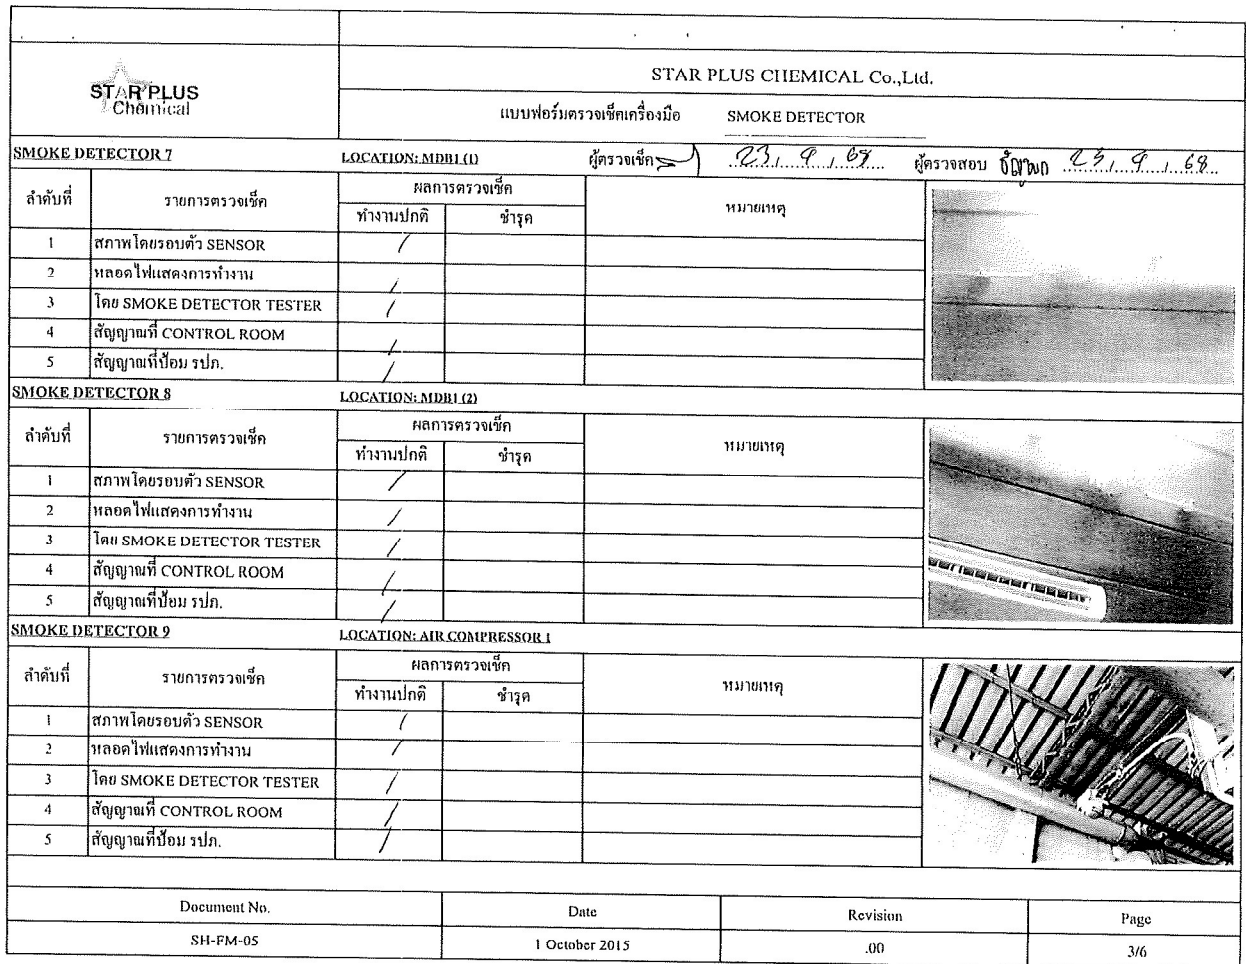 STAR PLUS
Chemical
STAR PLUS CHEMICAL Co.,Ltd.
แบบฟอร์มตรวจเช็คเครื่องมือ SMOKE DETECTOR
SMOKE DETECTOR 7 LOCATION: MDB1 (1) ผู้ตรวจเช็ค 23, 9, 68 ผู้ตรวจสอบ 23, 9, 68
ลำดับที่ รายการตรวจเช็ค ผลการตรวจเช็ค หมายเหตุ
ทำงานปกติ ชำรุด
1 สภาพโดยรอบตัว SENSOR /
2 หลอดไฟแสดงการทำงาน /
3 โดย SMOKE DETECTOR TESTER /
4 สัญญาณที่ CONTROL ROOM /
5 สัญญาณที่ป้อม รปภ. /
SMOKE DETECTOR 8 LOCATION: MDB1 (2)
ลำดับที่ รายการตรวจเช็ค ผลการตรวจเช็ค หมายเหตุ
ทำงานปกติ ชำรุด
1 สภาพโดยรอบตัว SENSOR /
2 หลอดไฟแสดงการทำงาน /
3 โดย SMOKE DETECTOR TESTER /
4 สัญญาณที่ CONTROL ROOM /
5 สัญญาณที่ป้อม รปภ. /
SMOKE DETECTOR 9 LOCATION: AIR COMPRESSOR 1
ลำดับที่ รายการตรวจเช็ค ผลการตรวจเช็ค หมายเหตุ
ทำงานปกติ ชำรุด
1 สภาพโดยรอบตัว SENSOR /
2 หลอดไฟแสดงการทำงาน /
3 โดย SMOKE DETECTOR TESTER /
4 สัญญาณที่ CONTROL ROOM /
5 สัญญาณที่ป้อม รปภ. /
Document No. Date Revision Page
SH-FM-05 1 October 2015 .00 3/6